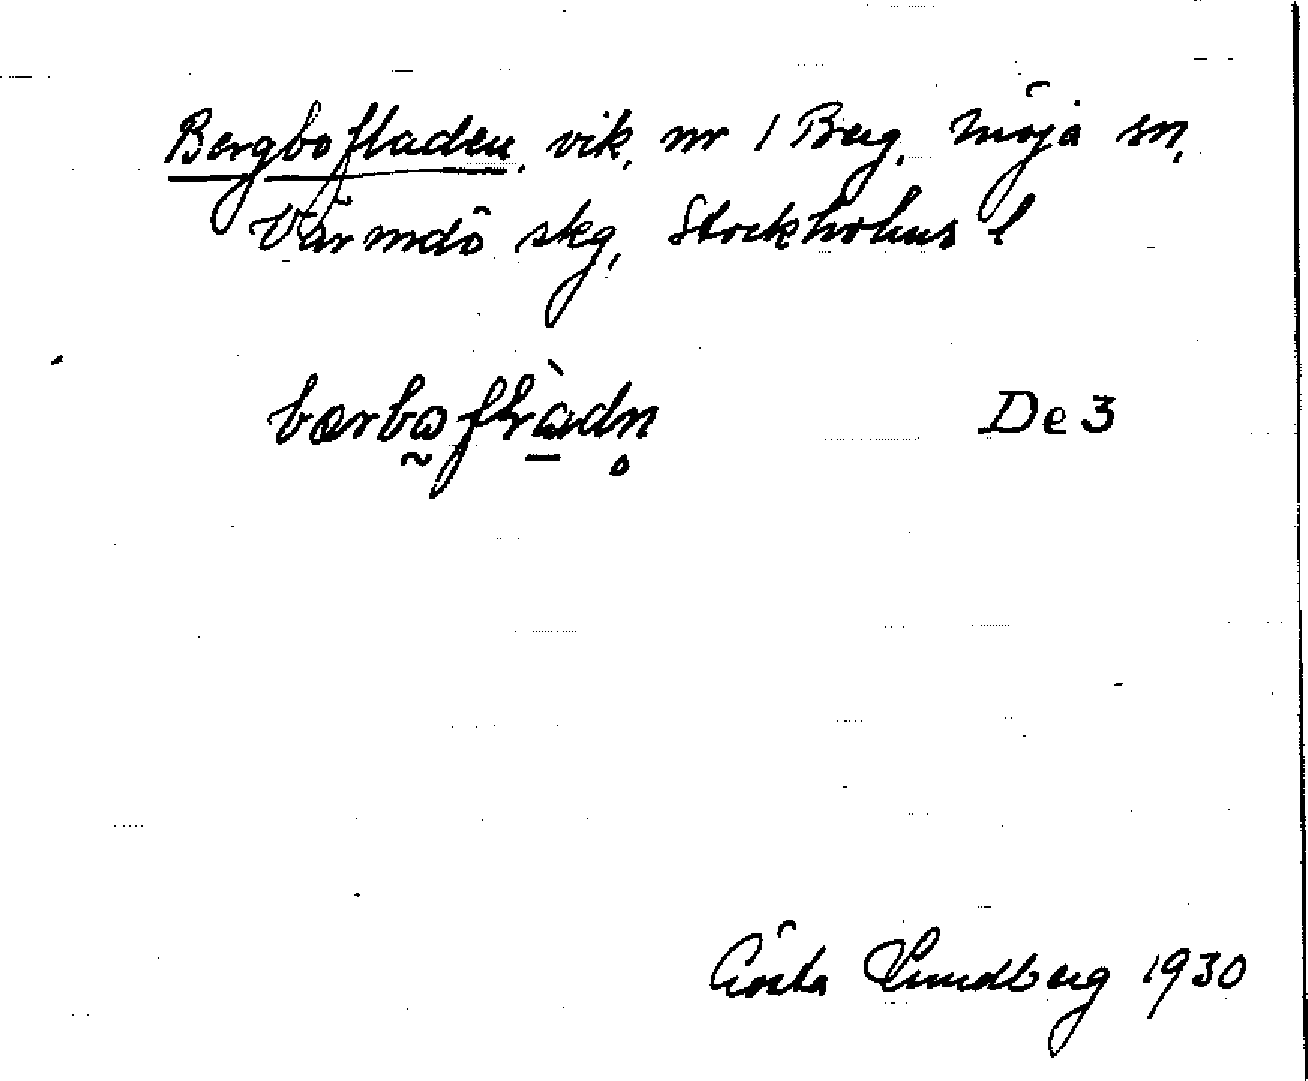 Bergbofladen, vik, nr 1 Berg, Möja sn,
Värmdö skg, Stockholms l
bærbo̰flàdn̥ De 3
Gösta Lundberg 1930